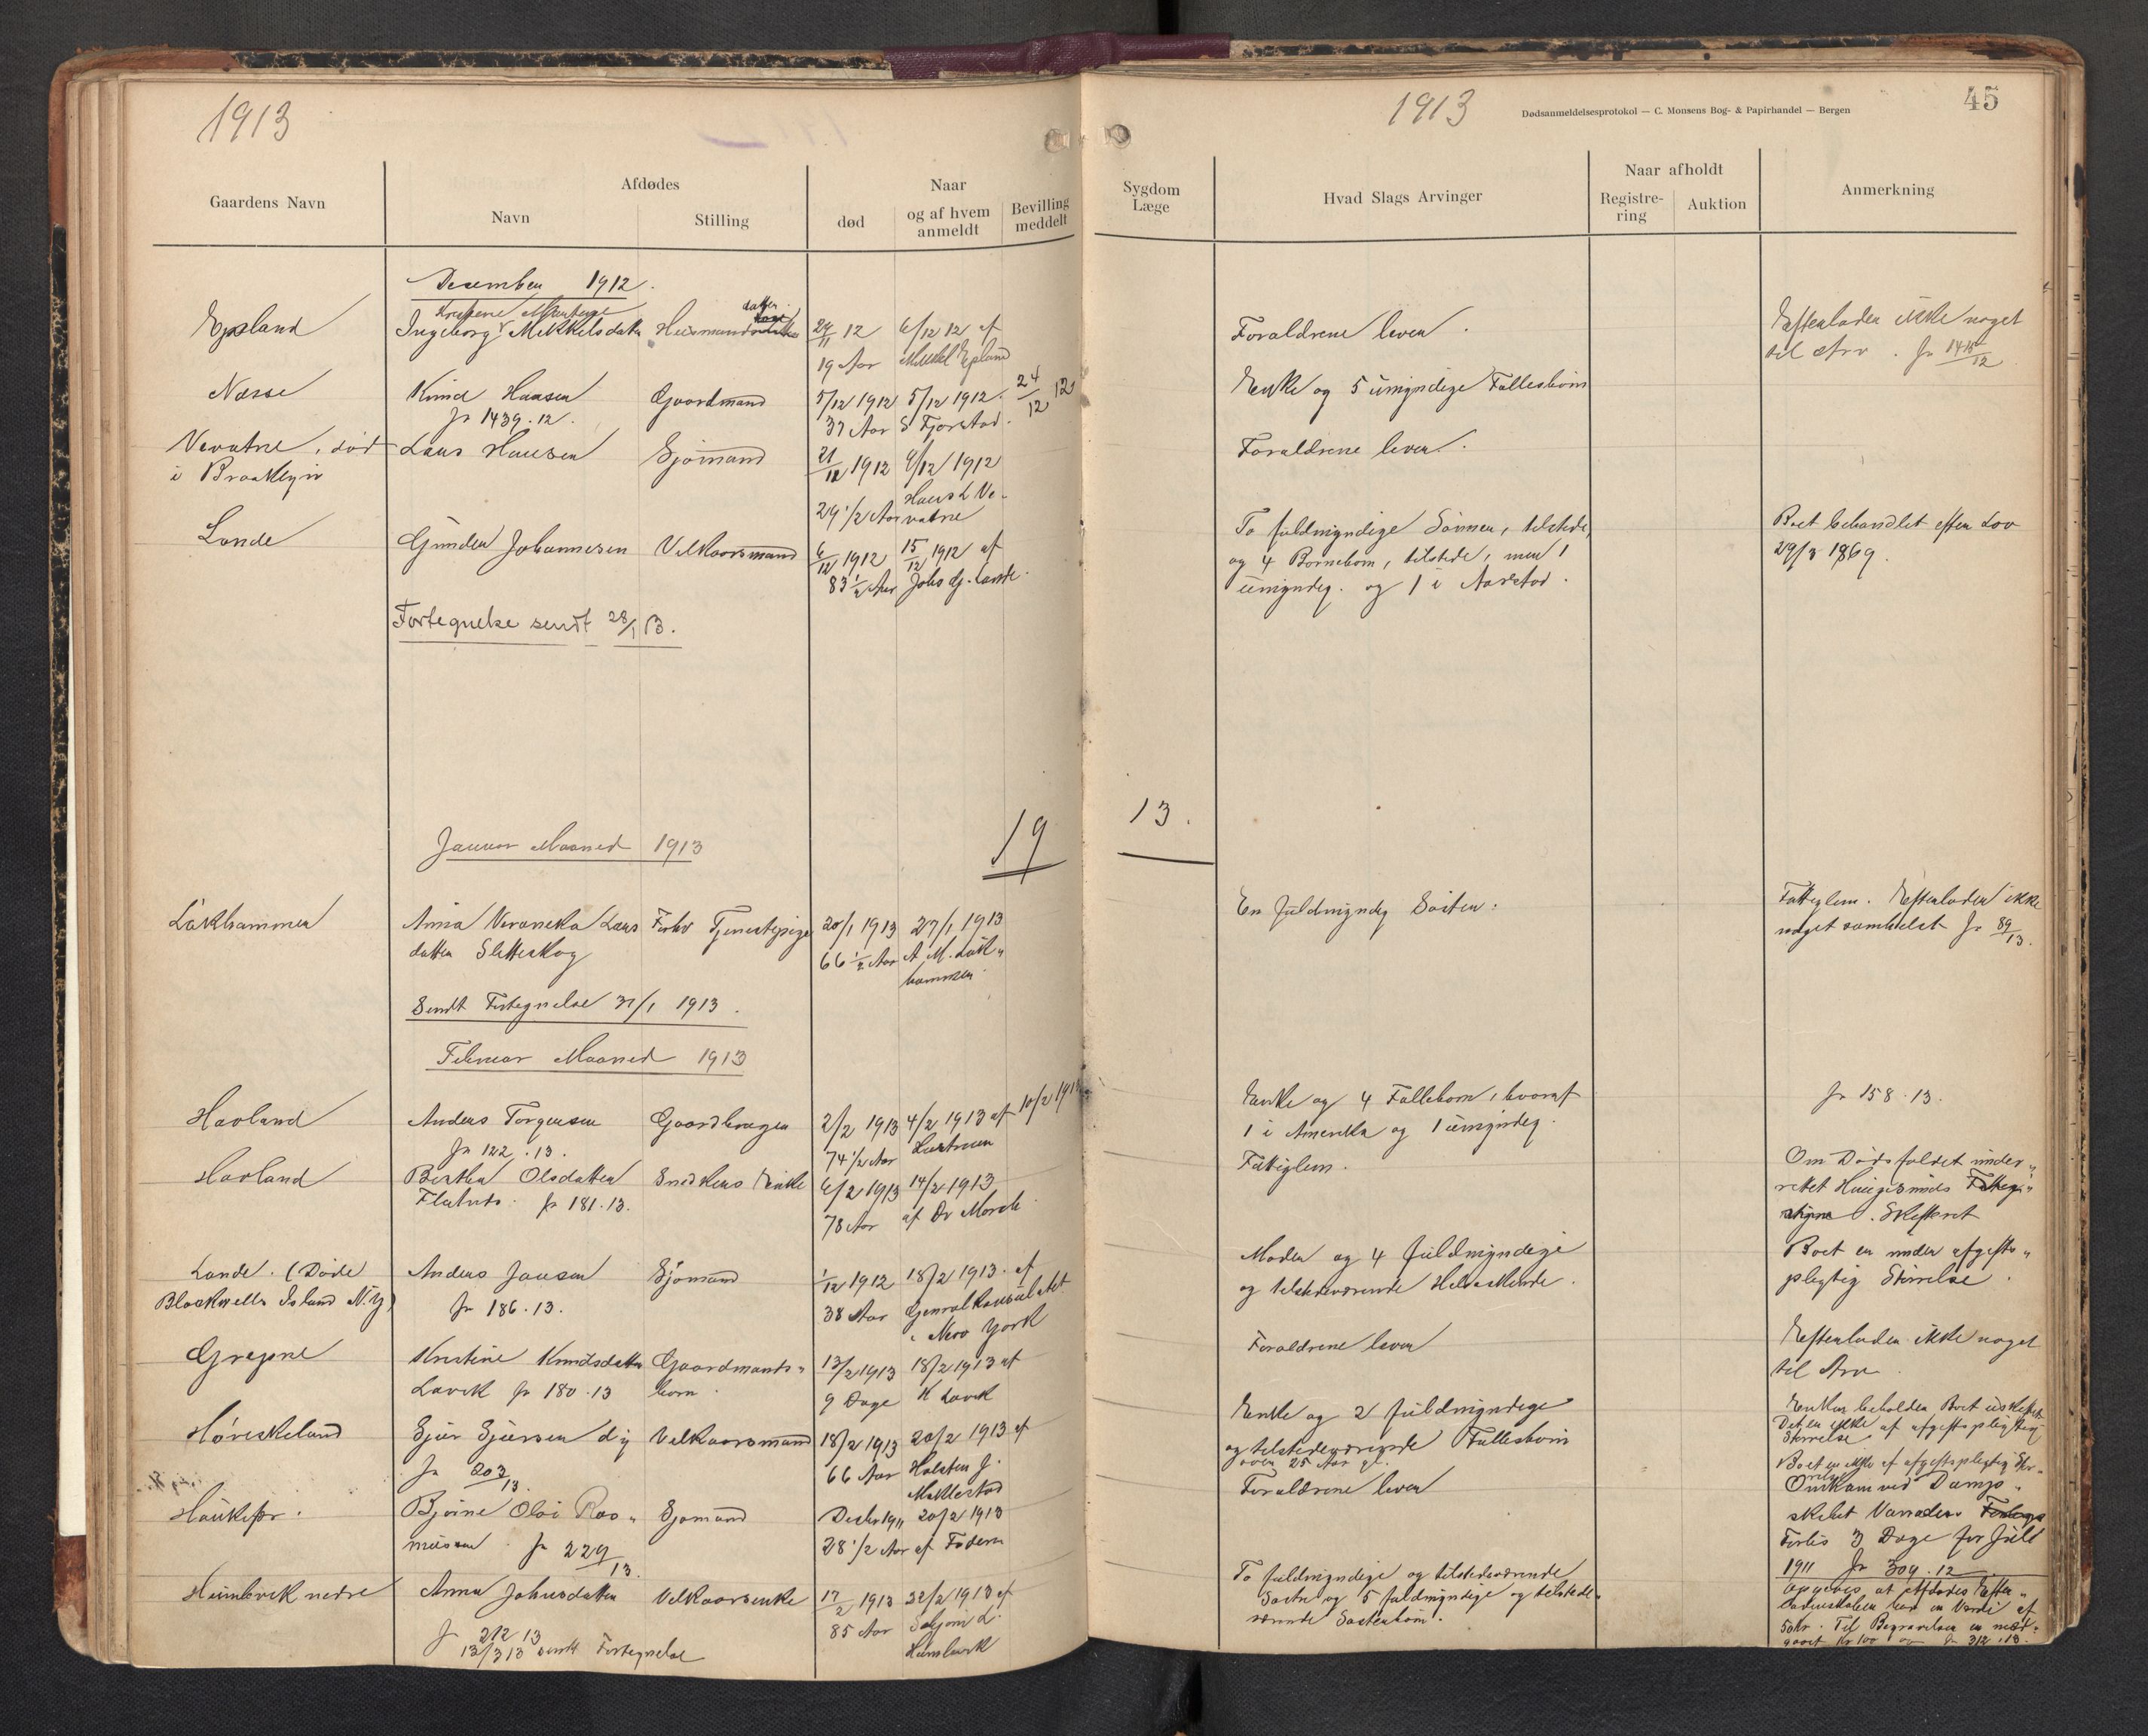 1913
Gaardens Navn
Afdødes
Navn
Stilling
Naar
død
og af hvem anmeldt
Bevilling meddelt
1913
Dødsanmeldelsesprotokol — C. Monsens Bog- & Papirhandel — Bergen
45
Sygdom
Læge
Hvad Slags Arvinger
Naar afholdt
Registre-
ring
Auktion
Anmerkning
December 1912.
Epland
Ingeborg Mikkelsdatter
datter
29/11 12
6/12 12 af
19 Aar
Mikkel Epland
Forældrene lever.
Efterlader ikke noget
til Arv. Jr 1415/12
Næsse
Knud Hansen
Jr 1439.12.
Gaardmand
5/12 1912
5/12 1912.
24/12 12
37 Aar
S Fjorstad.
Enke og 5 umyndige Fællesbørn
Vevatne, død
i Brooklyn
Lars Hansen
Sjømand
1912
9/12 1912
29 1/2 Aar
Hans L Ve-
vatne
Forældrene lever.
Lande
Gunder Johannesen
Velkaarsmand
6/12 1912
15/12 1912 af
83 1/2 Aar
Johs G. Lande.
To fuldmyndige Sønner, tilstede,
og 4 Børnebørn, tilstede, men 1
umyndig. og 1 i Aarstad.
Boet behandlet efter Lov
29/3 1869.
Fortegnelse sendt 28/1 13.
19
13.
Januar Maaned 1913
Låkhammer
Anna Veroneka Lars
datter Sletteskog
Forhv Tjenestepige
20/1 1913
27/1 1913
66 1/2 Aar
A M. Låk-
hammer.
En fuldmyndig Søster.
Fattiglem. Efterlader ikke
noget somhelst Jr 89/13.
Sendt Fortegnelse 31/1 1913.
Februar Maaned 1913
Havland
Anders Torgersen
Jr 122.13.
Gaardbruger
2/2 1913
4/2 1913 af
10/2 1913
74 1/2 Aar
Enke og 4 Fællebørn, hvoraf
1 i Amerika og 1 umyndig.
Jr 158.13.
Havland
Berthe Olsdatter
Flatnes. Jr 181.13.
Snidkers Enke
6/2 1913
14/2 1913
78 Aar
af Dr Morch
Fattiglem.
Om Dødsfaldet under-
rettet
Skifteret
Lande. (Døde
Blackwells Island N.Y)
Anders Jansen
Jr 186.13.
Sjømand
1/12 1912
18/2 1913. af
38 Aar
Generalkonsulatet
i New York
Moder og 4 fuldmyndige
og tilstedeværende Helsøskende.
Boet er under afgifts-
pligtig Størrelse.
Gregsne
Kristine Knudsdatter
Lavik Jr 180.13
Gaardmands-
barn.
13/2 1913
18/2 1913 af
9 Dage
K Lavik
Forældrene lever
Efterlader ikke noget
til Arv.
Høviskeland
Sjur Sjursen d.y
Jr 203/13.
Velkaarsmand
18/2 1913
20/2 1913 af
66 Aar
Halsten J.
Mæklestad
Enke og 2 fuldmyndige
og tilstedeværende Fællesbørn
over 25 Aar gl.
Enken beholder Boet uskiftet
Det er ikke af afgiftspligtig
Størrelse
Boet er ikke af afgiftspligtig Stør-
relse
Haukås.
Bjarne Olai Ras-
mussen. Jr 229/13.
Sjømand
Decbr 1911
20/2 1913
28 1/2 Aar
af Faderen
Forældrene lever
Omkom ved Damp-
skibet Varanders
Forlis 3 Dage før Juli
1911 Jr 309.12
Heimbvik nedre
Anna Johnsdatter
Jr 212 13
Velkaarsenke
17/2 1913
22/2 1913 af
85 Aar
To fuldmyndige og tilstedeværende
Søstre og 5 fuldmyndige og tilstede-
værende Søsterbørn.
Opgives at Afdødes Efter-
ladenskaber har en Værdi af
50 kr. Til Begravelsen er med-
gaaet Kr 100 Jr 312.13.
13/3 13 sendt Fortegnelse